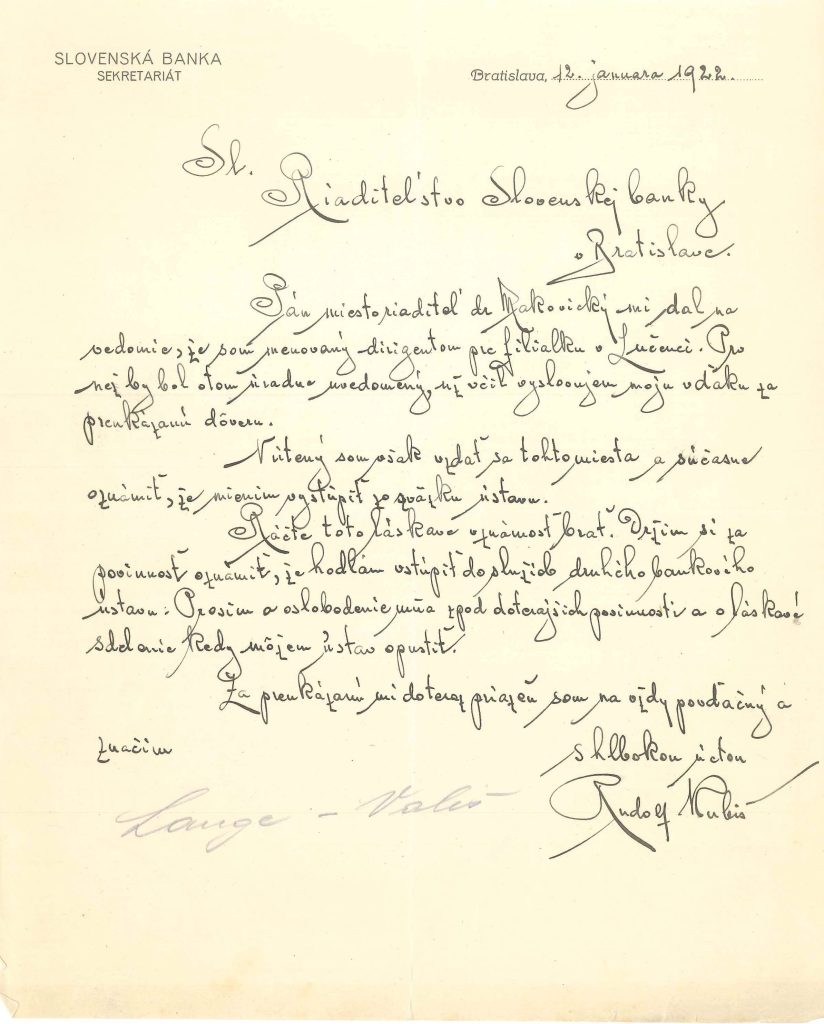 SLOVENSKÁ BANKA
SEKRETARIÁT
Bratislava, 12. januara 1922.
Sl.
Riaditeľstvo Slovenskej banky
v Bratislave.
Pán miestoriaditeľ dr Makovický mi dal na
vedomie, že som menovaný dirigentom pre filialku v Lučenci. Pro
než by bol otom úradne uvedomený, už včil vyslovujem moju vďáku za
preukázanú dôveru.
Nútený som však vzdať sa tohto miesta a súčasne
oznámiť, že mienim vystúpiť zo sväzku ústavu.
Ráčte toto láskave vznámosť brať. Držim si za
povinnosť oznámiť, že hodlám vstúpiť do služieb druhého bankového
ústavu. Prosim o oslobodenie mňa zpod doterajších povinností a o láskavé
sdelenie kedy môžem ústav opustiť.
Za preukázanú mi doteraz priazeň som na vždy povďačný a
značim
s hlbokou úctou
Rudolf
Lange - Vališ